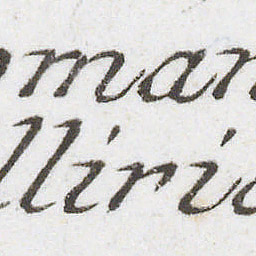 oman
lliric